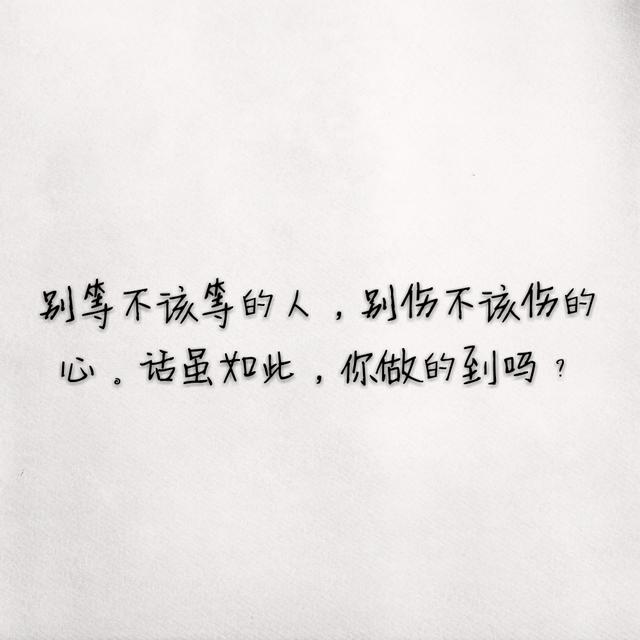 别等不该等的人，别伤不该伤的
心。话虽如此，你做的到吗？